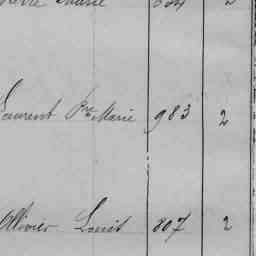 Marie 2
Laurent Pre Marie 983 2
Ollivier Louis 807 2